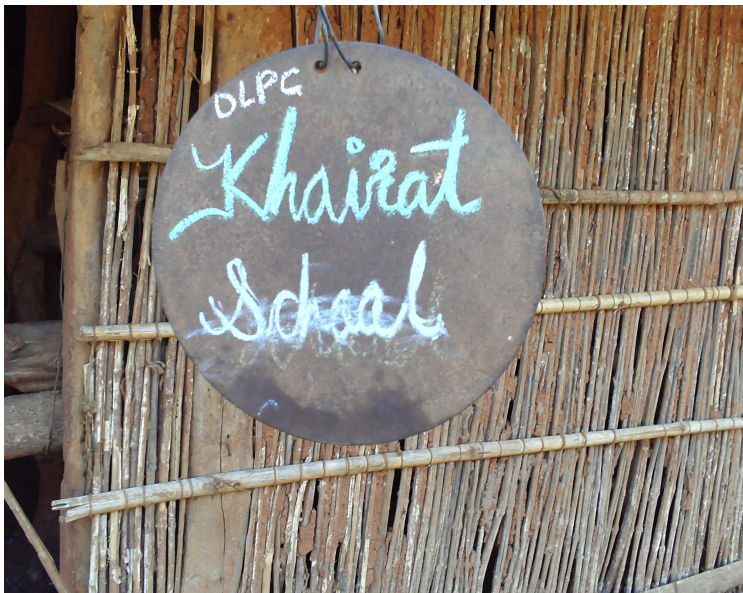 DLPC
Khairat
School